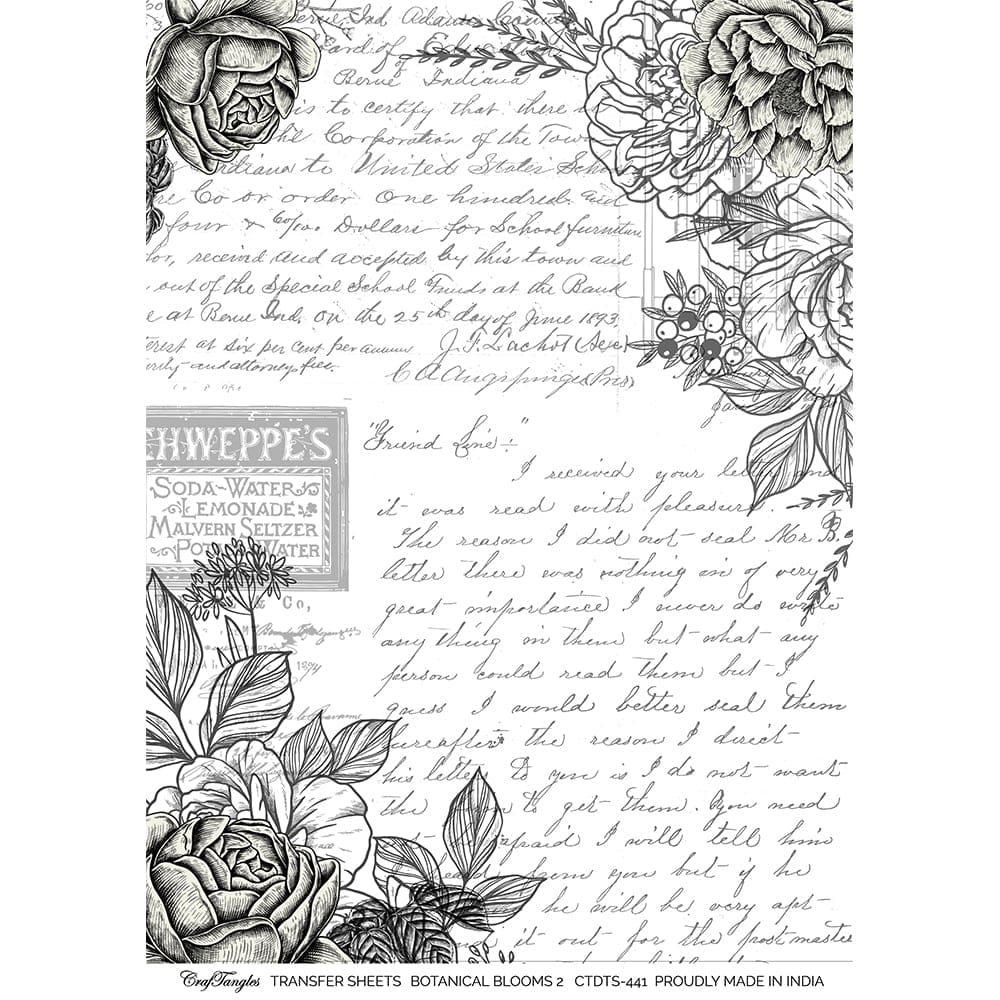 Berne, Ind Adams County
Board of Education
Berne Indiana
is to certify that there is
the Corporation of the Town
Indiana to United States School
Co or order One hundred and
four & 60/100 Dollars for School furniture
for, received and accepted by this town and
out of the Special School Funds at the Bank
e at Berne Ind. on the 25th day of June 1893.
terest at six per cent per annum
J. F. Lachot (Sec)
and attorney fees.
C A Augspurger (Pres)
CHWEPPE'S
SODA-WATER
LEMONADE
MALVERN SELTZER
POT WATER
& Co,
1894
de la Havanne
"Friend Line ÷"
I received your letter and
it was read with pleasure.
The reason I did not seal Mr B.
letter there was nothing in of very
great importance I never do write
any thing in them but what any
person could read them but I
guess I would better seal them
hereafter the reason I direct
his letter to you is I do not want
the to get them. You need
afraid I will tell him
from you but if he
he will be very apt
it out for the postmaster
CrafTangles TRANSFER SHEETS BOTANICAL BLOOMS 2 CTDTS-441 PROUDLY MADE IN INDIA